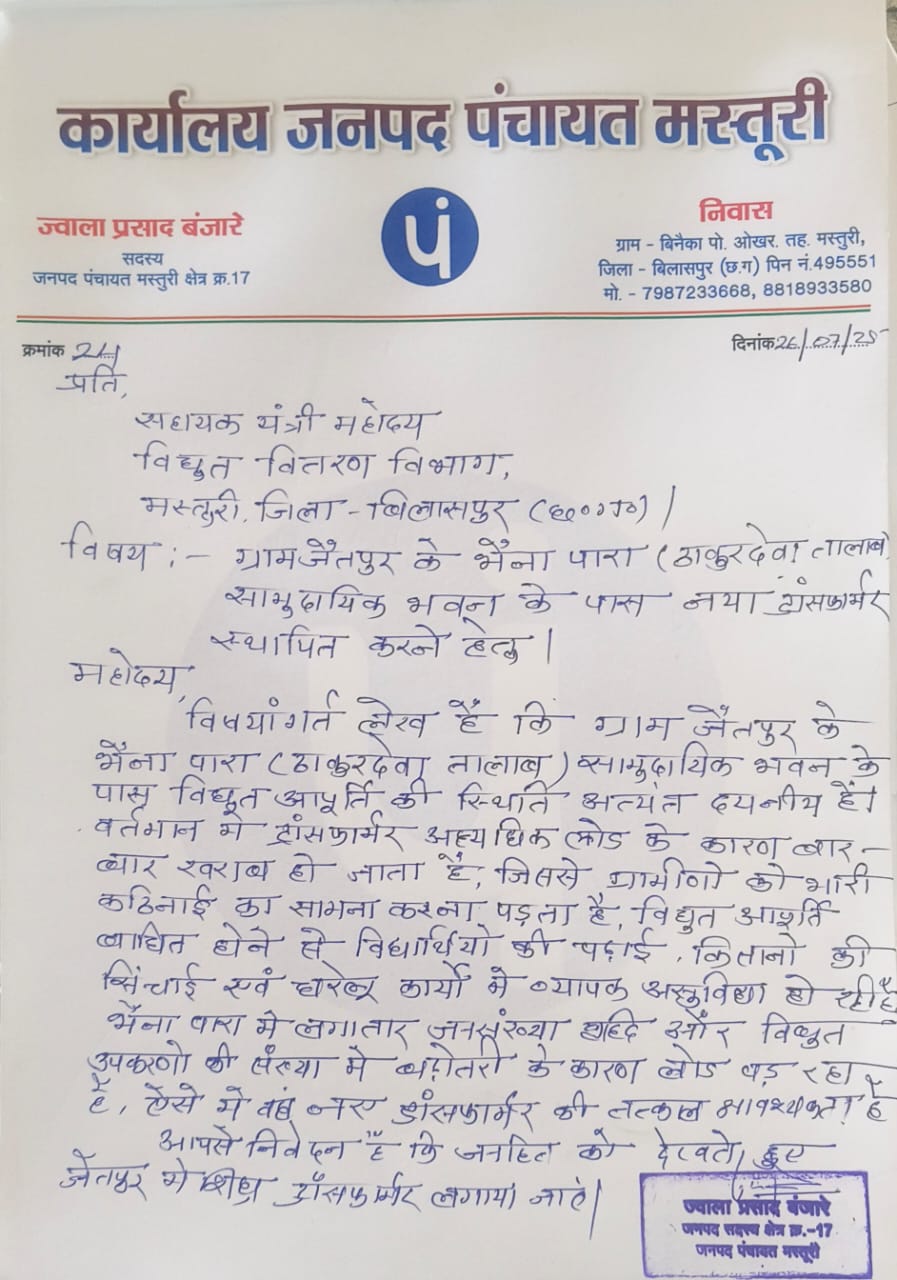 कार्यालय जनपद पंचायत मस्तूरी
ज्वाला प्रसाद बंजारे
सदस्य
जनपद पंचायत मस्तुरी क्षेत्र क्र.17
पं
निवास
ग्राम - बिनैका पो. ओखर. तह. मस्तुरी,
जिला - बिलासपुर (छ.ग) पिन नं.495551
मो. - 7987233668, 8818933580
क्रमांक 24
दिनांक 26/07/25
प्रति,
सहायक यंत्री महोदय
विद्युत वितरण विभाग,
मस्तुरी, जिला - बिलासपुर (छ०ग०)।
विषय :- ग्राम जैतपुर के भैना पारा (ठाकुरदेवा तालाब)
सामुदायिक भवन के पास नया ट्रांसफार्मर
स्थापित करने हेतु।
महोदय,
विषयांगर्त लेख है कि ग्राम जैतपुर के
भैना पारा (ठाकुरदेवा तालाब) सामुदायिक भवन के
पास विद्युत आपूर्ति की स्थिति अत्यंत दयनीय है।
वर्तमान मे ट्रांसफार्मर अत्यधिक लोड के कारण बार-
बार खराब हो जाता है, जिससे ग्रामीणो को भारी
कठिनाई का सामना करना पड़ता है, विद्युत आपूर्ति
बाधित होने से विद्यार्थियो की पढ़ाई, किसानो की
सिंचाई एवं घरेलू कार्यो मे व्यापक असुविधा हो रही है
भैना पारा मे लगातार जनसंख्या वृद्दि और विद्युत
उपकरणो की संख्या मे बढ़ोतरी के कारण लोड बढ़ रहा
है, ऐसे मे वहां नए ट्रांसफार्मर की तत्काल आवश्यकता है
आपसे निवेदन है कि जनहित को देखते हुए
जैतपुर मे शीघ्र ट्रांसफार्मर लगाया जाए।
ज्वाला प्रसाद बंजारे
जनपद सदस्य क्षेत्र क्र.-17
जनपद पंचायत मस्तूरी